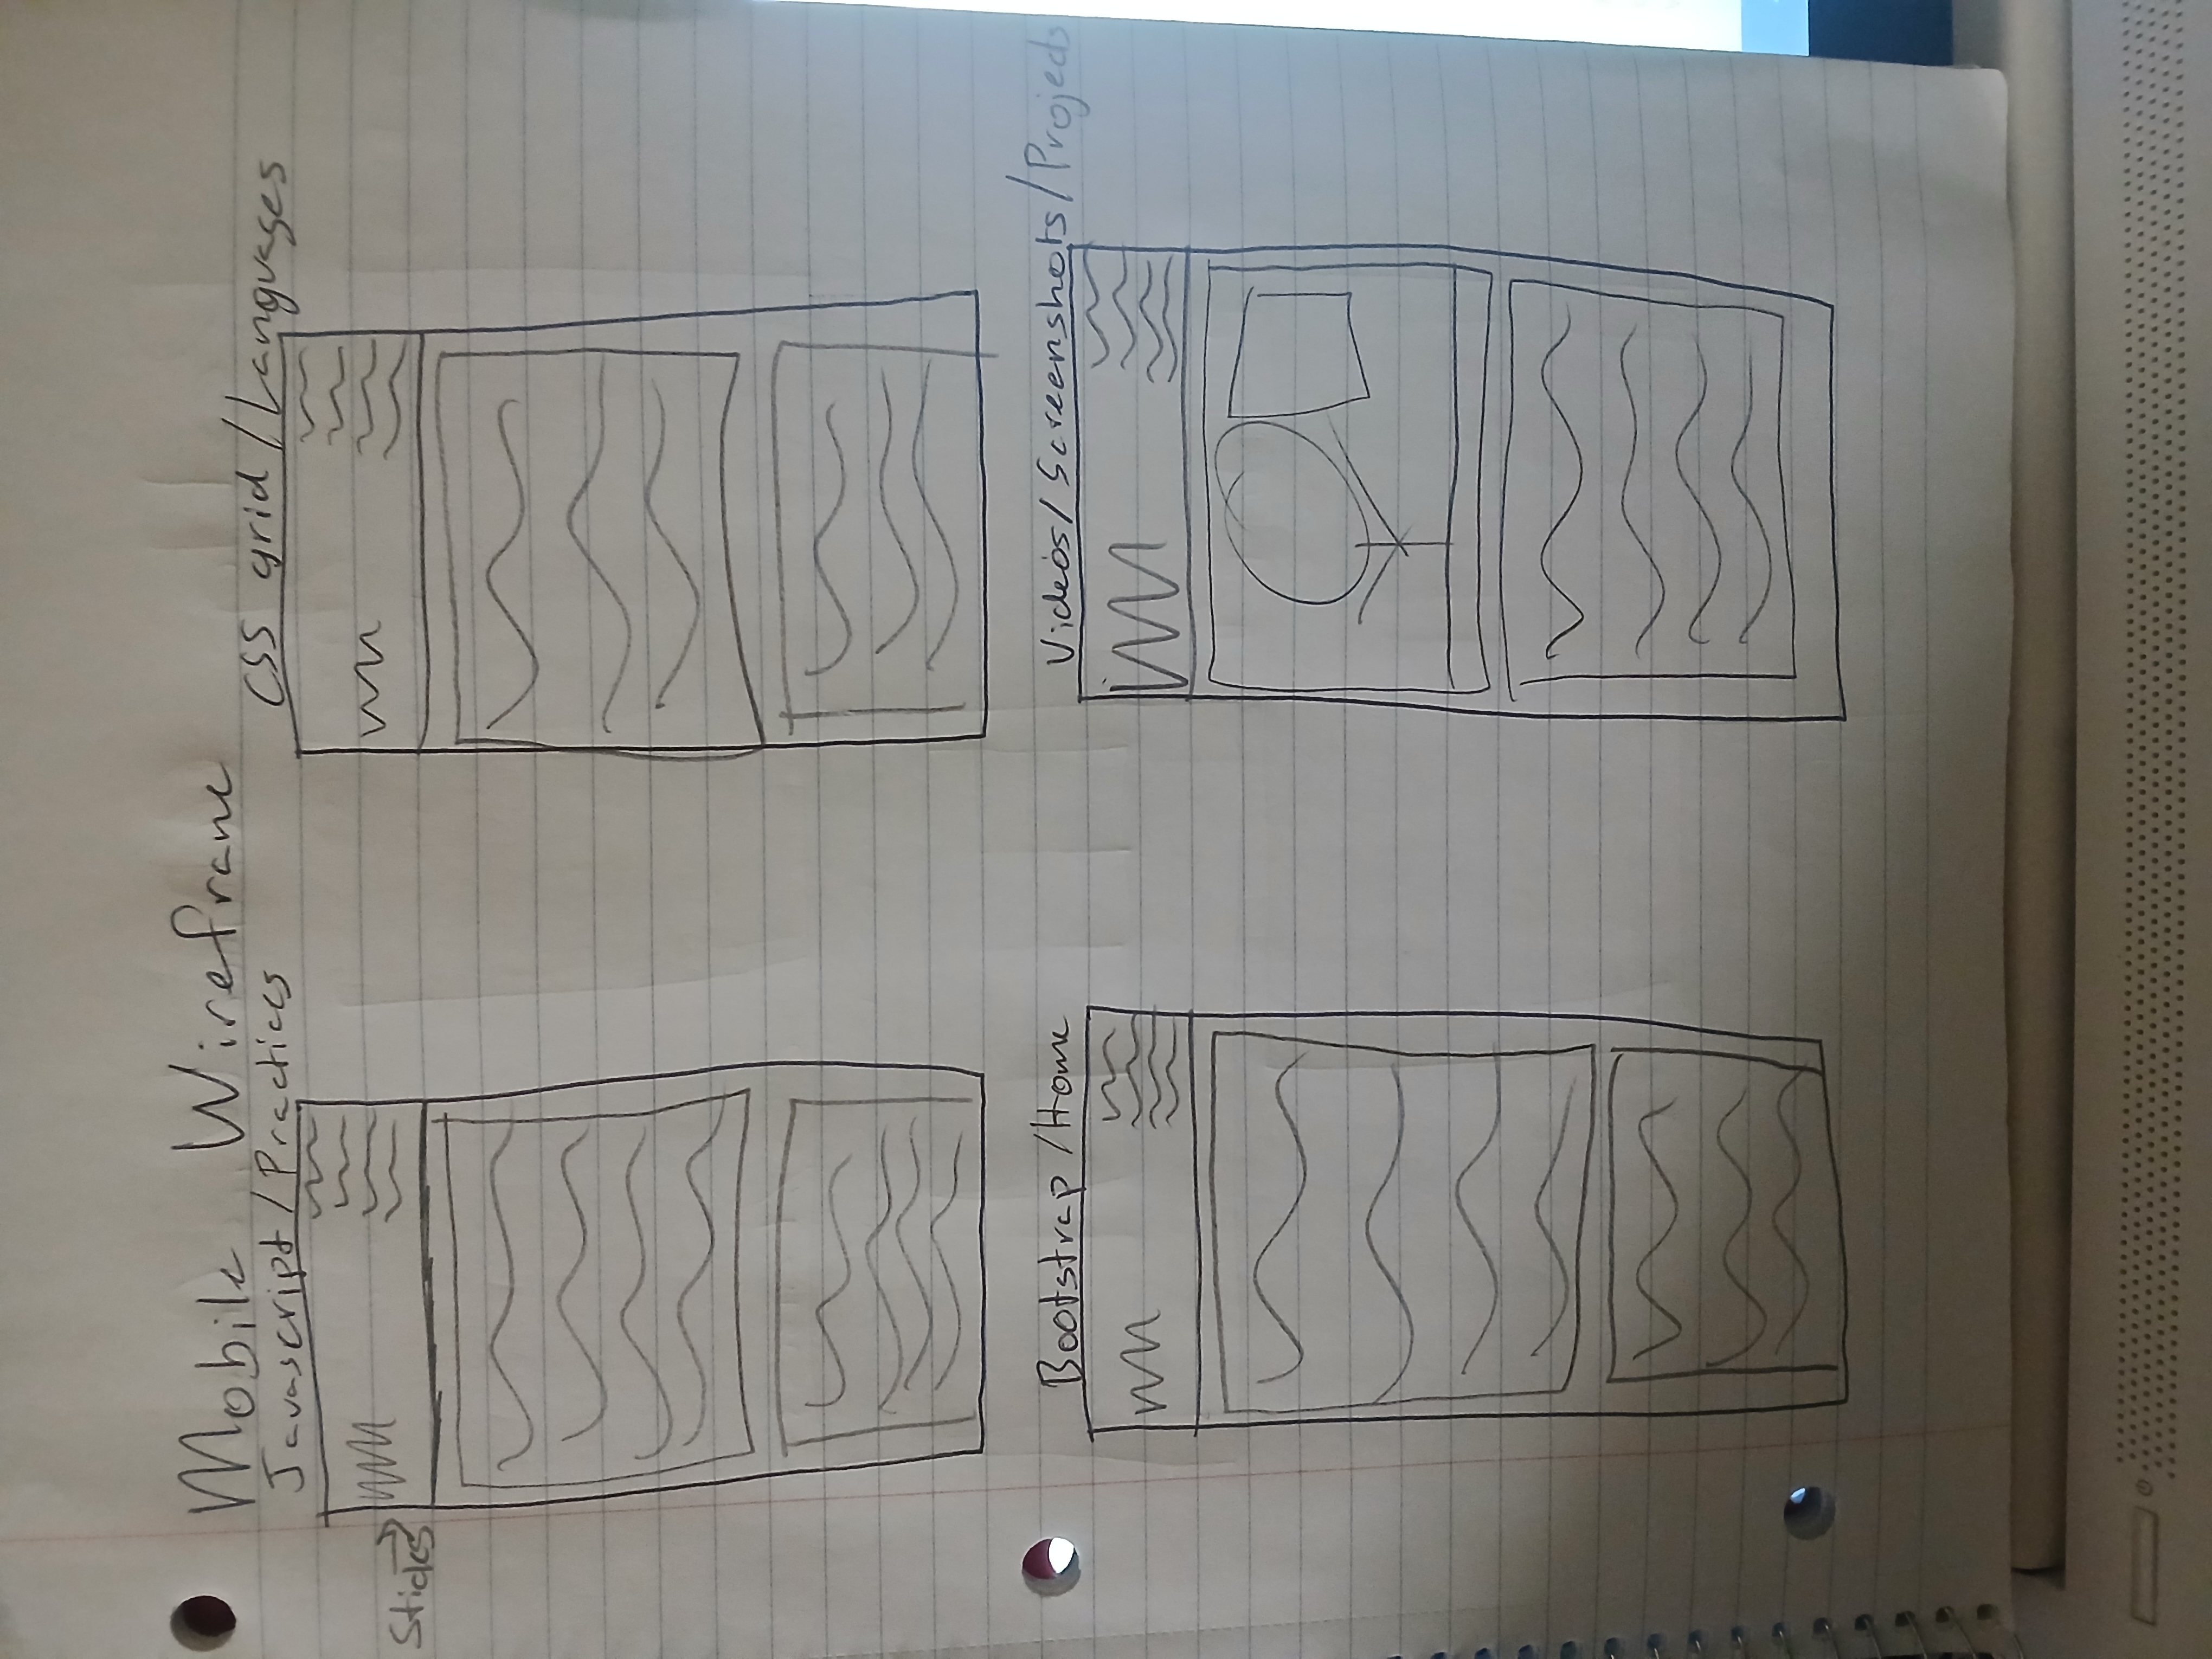 Mobile Wireframe
Javascript/Practices
CSS grid/Languages
Sticks
Bootstrap/Home
Videos/Screenshots/Projects